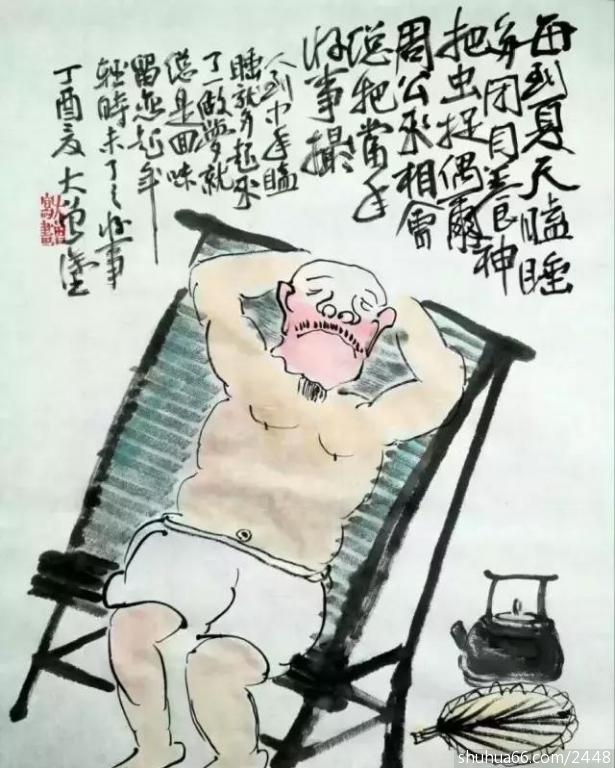 每到夏天瞌睡
多闭目养神
把虫捉偶爾
周公來相會
总把當年
好事撮
人到中年瞌
睡就多起來
了一做夢就
总是回味
留恋起年
轻時未了之好事
丁酉夏大曾塗
shuhua66.com/2448